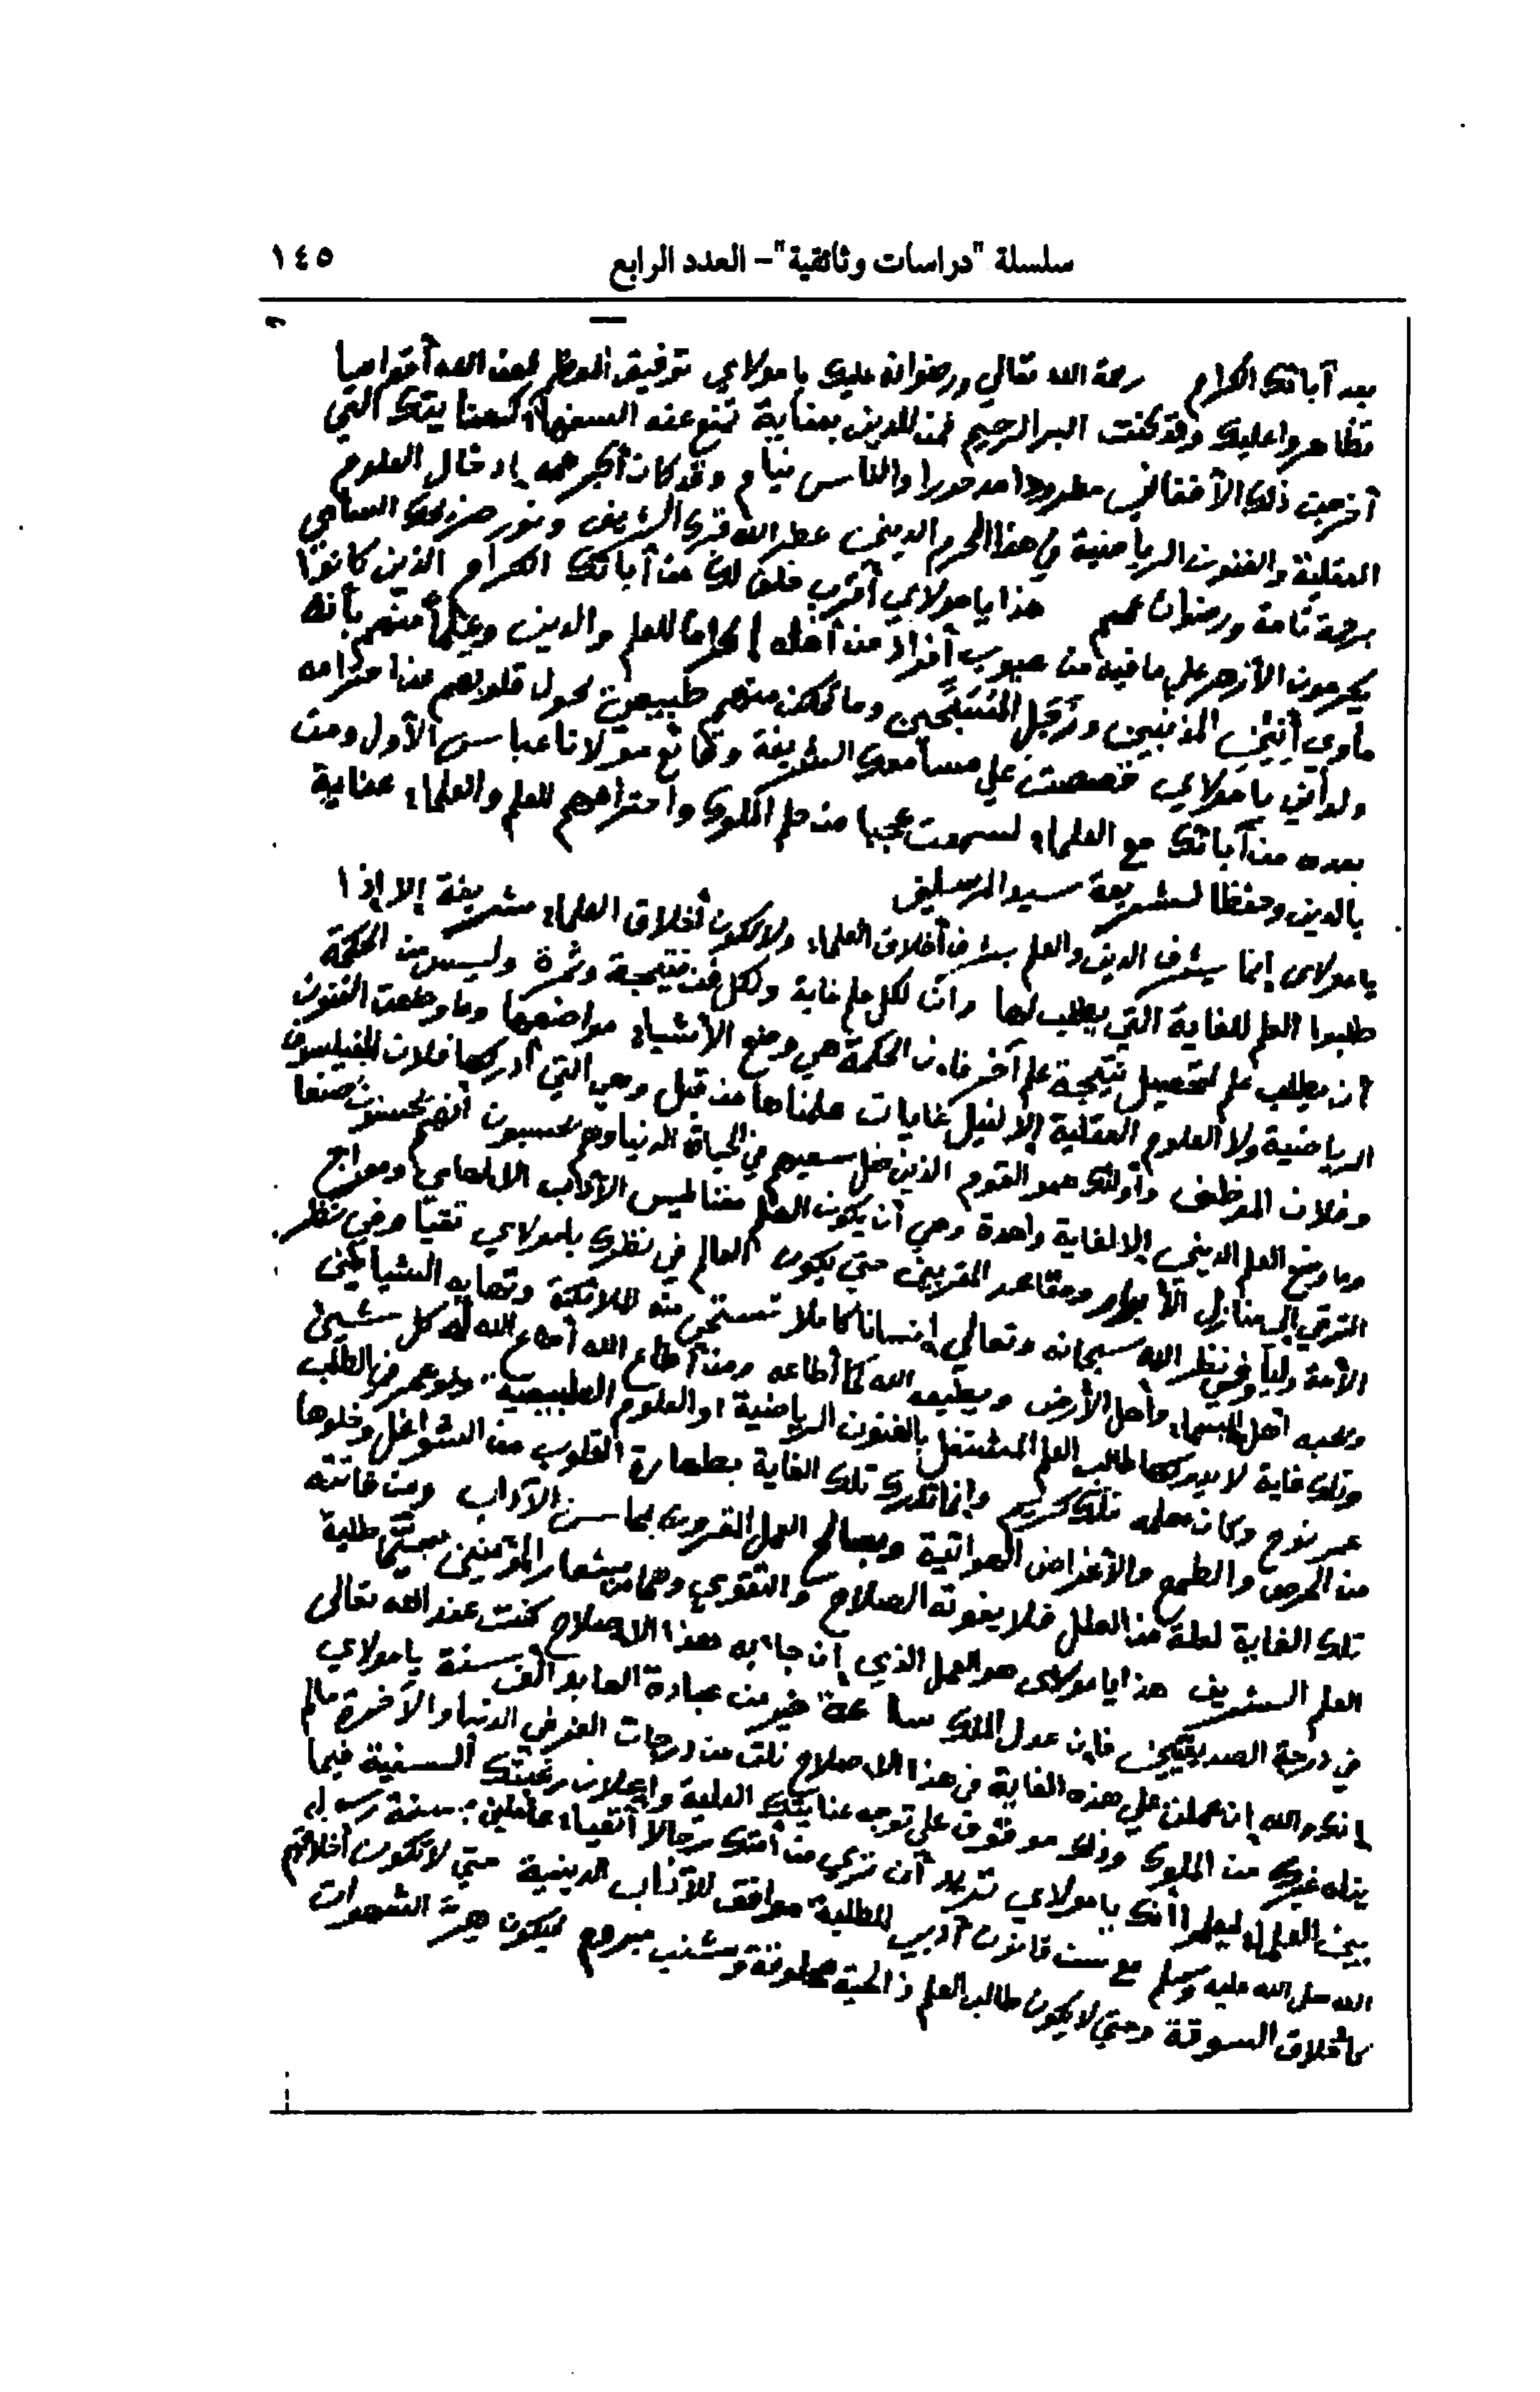 سلسلة "دراسات وثائقية" – العدد الرابع ١٤٥
بعد آبائك الكرام رحمة الله تعالي ورضوانه عليك يا مولاي توفيق لعن الله أقواما
تظاهروا عليك وقد كنت البر الرحيم فمن للدين بعناية تمنع عنه السفهاء كعنايتك التي
أخرجت ذلك الأفغاني مطرودا مدحورا والناس نيام وقد كان أكبر همه إدخال العلوم
العقلية والفنون الرياضية في هذا الحرم الديني عطر الله ثرى الشريف ونور ضريحك السامي
برحمة تامة ورضوان عميم هذا يا مولاي أقرب خلف لك من آبائك الكرام الذين كانوا
يكرمون الأزهر علي ما فيه من عيوب أفراد من أهله إكراما للعلم والدين وعلما منهم بأنه
مأوي أنين المذنبين وما تمكن منهم طبيعة تحول قلوبهم عن احترامه
ولو أني يا مولاي قصصت علي مسامعك الشريفة وقائع مولانا عباس الأول ومن
بعده من آبائك مع العلماء لسمعت عجبا من حلم الملوك واحترامهم للعلم والعلماء عناية
بالدين وحفظا لشريعة سيد المرسلين
يا مولاي إنما يشرف الدين والعلم بشرف أخلاق العلماء ولا تكون أخلاق العلماء شريفة إلا إذا
طلبوا العلم للغاية التي يطلب لها وأن لكل علم غاية ولكل فن نتيجة وثمرة وليس من الحكمة
أن يطلب علم لتحصيل نتيجة علم آخر فإن الحكمة هي وضع الأشياء مواضعها وما وضعت الفنون
الرياضية ولا العلوم العقلية إلا لنيل غايات علمناها من قبل وهي التي أدركها فلان الفيلسوف
وفلان الموظف وأولئك هم القوم الذين ضل سعيهم في الحياة الدنيا وهم يحسبون أنهم يحسنون صنعا
وما وضع العلم الديني إلا لغاية واحدة وهي أن يكون العلم مغناطيس الآداب الالهامي ومعراج
الترقي إلي منازل الأبرار ومقاعد المقربين حتي يكون العالم في نظرك يا مولاي تقيا وفي نظر
الأمة وليا وفي نظر الله سبحانه وتعالي إنسانا كاملا تستحي منه الملائكة وتهابه الشياطين
ويحبه أهل السماء وأهل الأرض ويطيعه الله كما أطاعه ومن أطاع الله أطاع الله له كل شيئ
وتلك غاية لا يدركها طالب العلم المشتغل بالفنون الرياضية او العلوم الطبيعية ولو عمر في الطلب
عمر نوح وكان معلمه وإنما تدرك تلك الغاية بطهارة القلوب من الشواغل وخلوها
من الحرص والطمع والأغراض وبصالح العمل المقرون بمحاسن الآداب ومن فاتته
تلك الغاية لعلة من العلل فلا يفوته الصلاح والتقوي وهما من شعار المؤمنين طلبة
العلم الشريف هذا يا مولاي هو العمل الذي إن جاء به هذا الاصلاح كنت عند الله تعالي
في درجة الصديقين فإن عدل الملوك ساعة خير من عبادة العابد ألف سنة يا مولاي
إنك والله إن عملت علي هذه الغاية في هذا الاصلاح نلت من درجات العز في الدنيا والآخرة ما لم
ينله غيرك من الملوك وذلك موقوف علي توجه عنايتك العلية وإعلان رغبتك السنية فيما
بين العلماء ليعلموا أنك يا مولاي تريد أن تري من أمتك رجالا أتقياء عاملين بسنة رسول
الله صلي الله عليه وسلم مع سن قانون أدبي للطلبة موافق للآداب الدينية حتي لا تكون أخلاقهم
كأخلاق السوقة وحتي لا يكون طالب العلم ذا لحية محلوقة وشنب مبروم ليكون هزء الشهوات